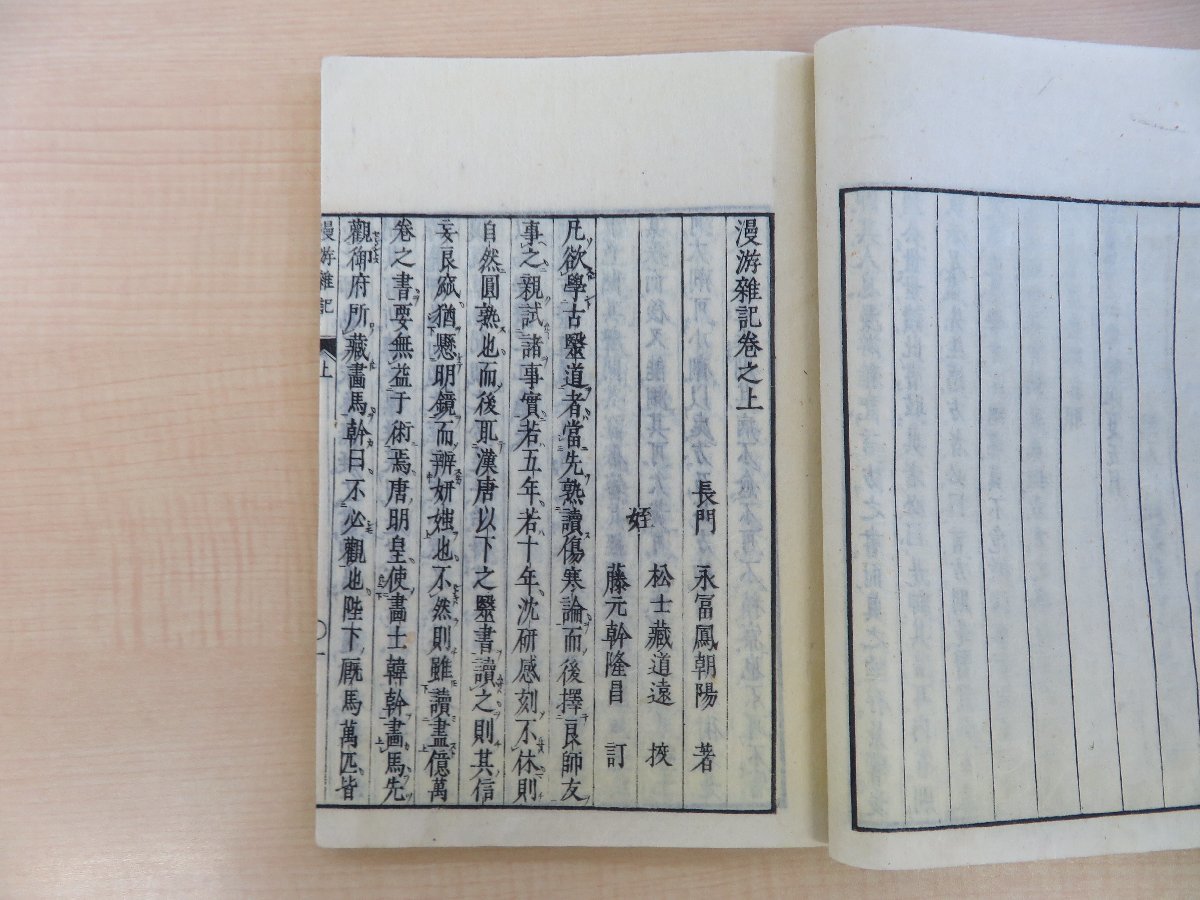 漫游雜記卷之上
長門 永冨鳳朝陽 著
松士藏道遠 挍
姪
藤元幹隆昌 訂
凡欲學古毉道者當先熟讀傷寒論而後擇良師友
事之親試諸事實若五年若十年沈研感刻不休則
自然圓熟也而後取漢唐以下之毉書讀之則其信
妄良窳猶懸明鏡而辨妍媸也不然則雖讀盡億萬
卷之書要無益于術焉唐明皇使畵士韓幹畵馬先
觀御府所藏畵馬幹曰不必觀也陛下厩馬萬匹皆
漫游雜記 上 〇一